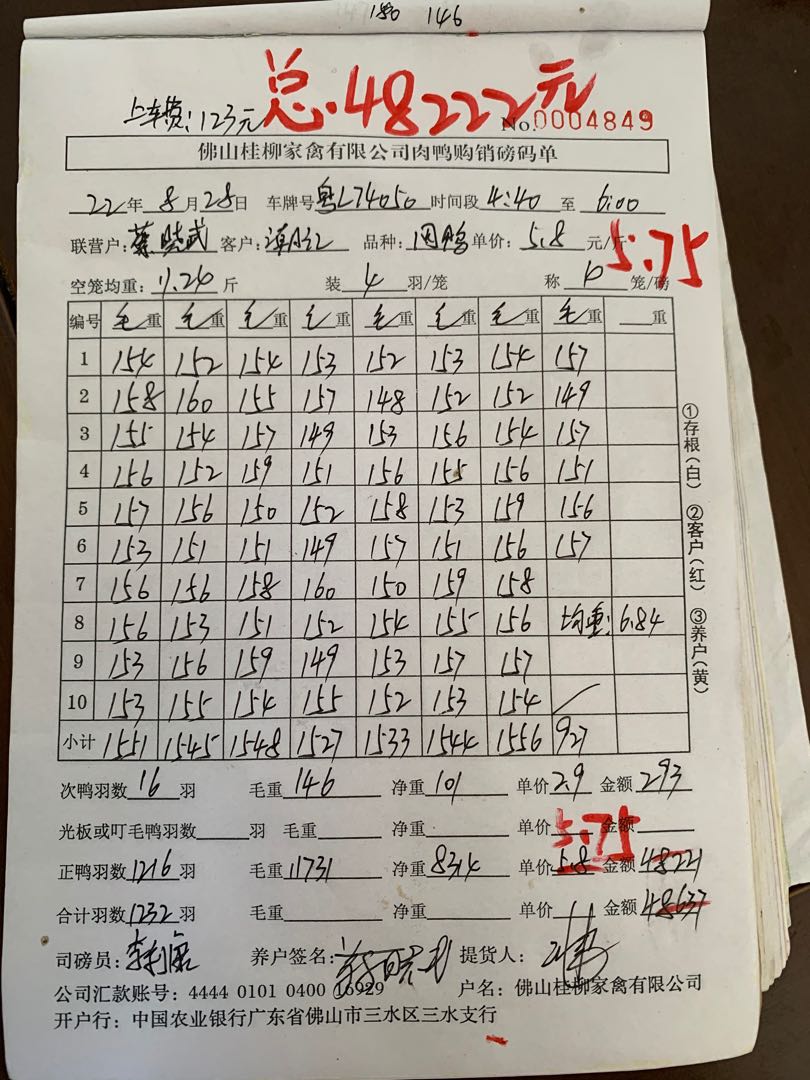 150 146
上车费:123元 总.48222元
No.0004849
佛山桂柳家禽有限公司肉鸭购销磅码单
22年8月28日 车牌号粤L74050 时间段4:40至6:00
联营户:蔡晓武 客户: 品种: 单价:5.8元/斤 5.75
空笼均重:11.24斤 装4羽/笼 称10笼/磅
编号 毛重 毛重 毛重 毛重 毛重 毛重 毛重 毛重 重
1 154 152 154 153 152 153 154 157
2 158 160 155 157 148 152 152 149
3 155 154 157 149 153 156 154 157
4 156 152 159 151 156 155 156 151
5 157 156 150 152 158 153 159 156
6 153 151 151 149 157 151 156 157
7 156 156 158 160 150 159 158
8 156 153 151 152 154 155 156 均重:6.84
9 153 156 159 149 153 157 157
10 153 155 154 155 152 153 154
小计 1551 1545 1548 1527 1533 1544 1556 927
①存根(白) ②客户(红) ③养户(黄)
次鸭羽数16羽 毛重146 净重101 单价2.9 金额293
光板或叮毛鸭羽数羽 毛重 净重 单价 金额
5.75
正鸭羽数1216羽 毛重11731 净重8314 单价5.8 金额48221
合计羽数1232羽 毛重 净重 单价 金额48637
司磅员: 养户签名: 提货人:
公司汇款账号:4444 0101 0400 16929 户名:佛山桂柳家禽有限公司
开户行:中国农业银行广东省佛山市三水区三水支行